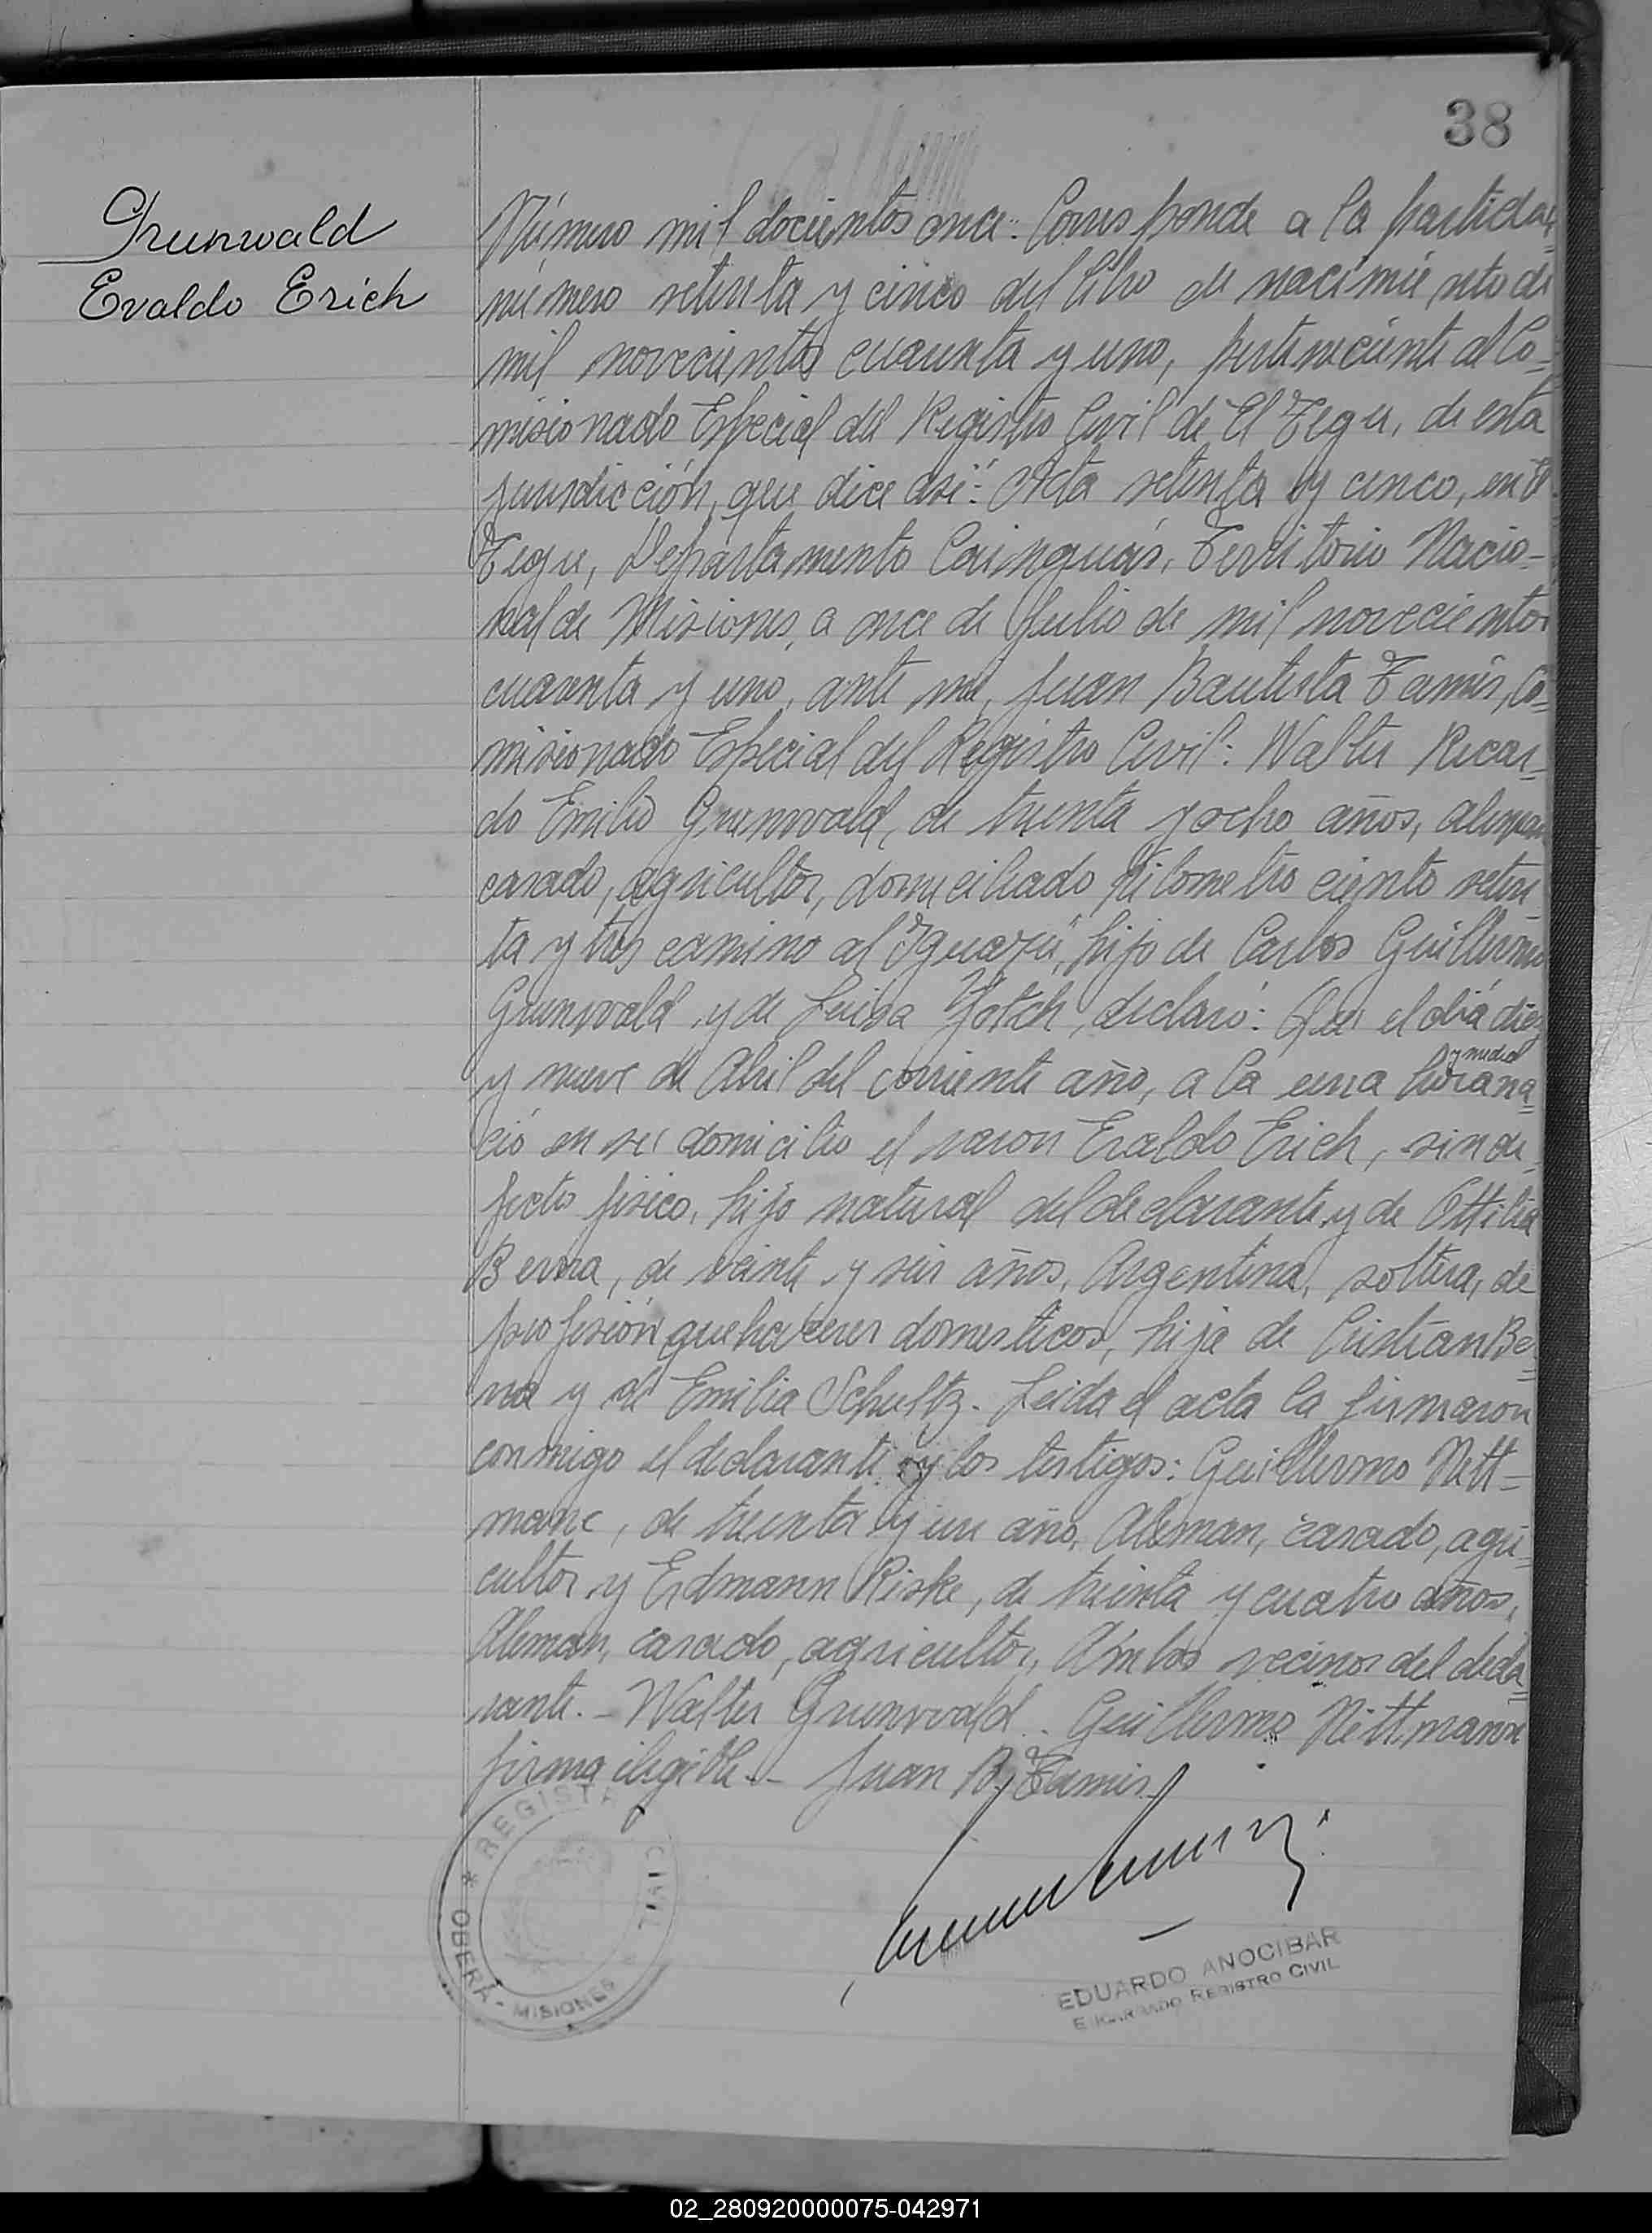 38
Grunwald
Evaldo Erich
Número mil docientos once: Corresponde a la partida
número setenta y cinco del libro de nacimiento de
mil novecientos cuarenta y uno, perteneciente al Co-
misionado Especial del Registro Civil de El Tegu, de esta
jurisdicción, que dice así: Acta setenta y cinco, en
Tegu, Departamento Cainguás, Territorio Nacio-
nal de Misiones, a once de Julio de mil novecientos
cuarenta y uno, ante mi, Juan Bautista Tamis, Co-
misionado Especial del Registro Civil: Walter Ricar-
do Emilio Grunwald, de treinta y ocho años, aleman
casado, agricultor, domiciliado kilometro ciento seten-
ta y tres camino al Iguazú, hijo de Carlos Guillermo
Grunwald y de Luisa declaró: Que el día diez
y nueve de Abril del corriente año, a la una hora y media na-
ció en su domicilio el varon Evaldo Erich, sin de-
fecto fisico, hijo natural del declarante y de Ottilia
de veinte y seis años, Argentina, soltera, de
profesión quehaceres domesticos, hija de Cristian Be-
y de Emilia Schultz. Leida el acta la firmaron
conmigo el declarante y los testigos: Guillermo Nitt-
mann, de treinta y un año, Aleman, casado, agri-
cultor y Erdmann Riske, de treinta y cuatro años,
Aleman, casado, agricultor, Ambos vecinos del decla-
rante. - Walter Grunwald. Guillermo Nittmann
firma ilegible. - Juan B. Tamis.
REGISTRO CIVIL
OBERÁ - MISIONES
EDUARDO ANOCIBAR
ENCARGADO REGISTRO CIVIL
02_280920000075-042971